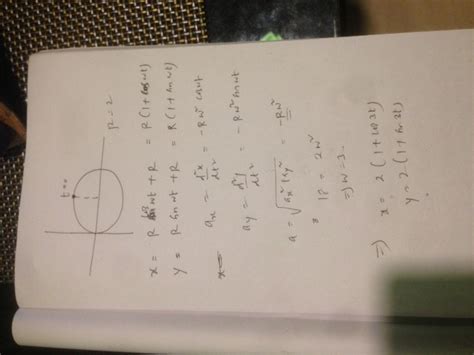 t=0
R=2
x = R cos wt + R = R(1+cos wt)
y = R sin wt + R = R(1+sin wt)
ax = d²x/dt² = -Rw² cos wt
ay = d²y/dt² = -Rw² sin wt
a = √ax²+ay² = -Rw²
18 = 2w²
⇒ w=3
⇒ x = 2(1+cos 3t)
y = 2(1+sin 3t)